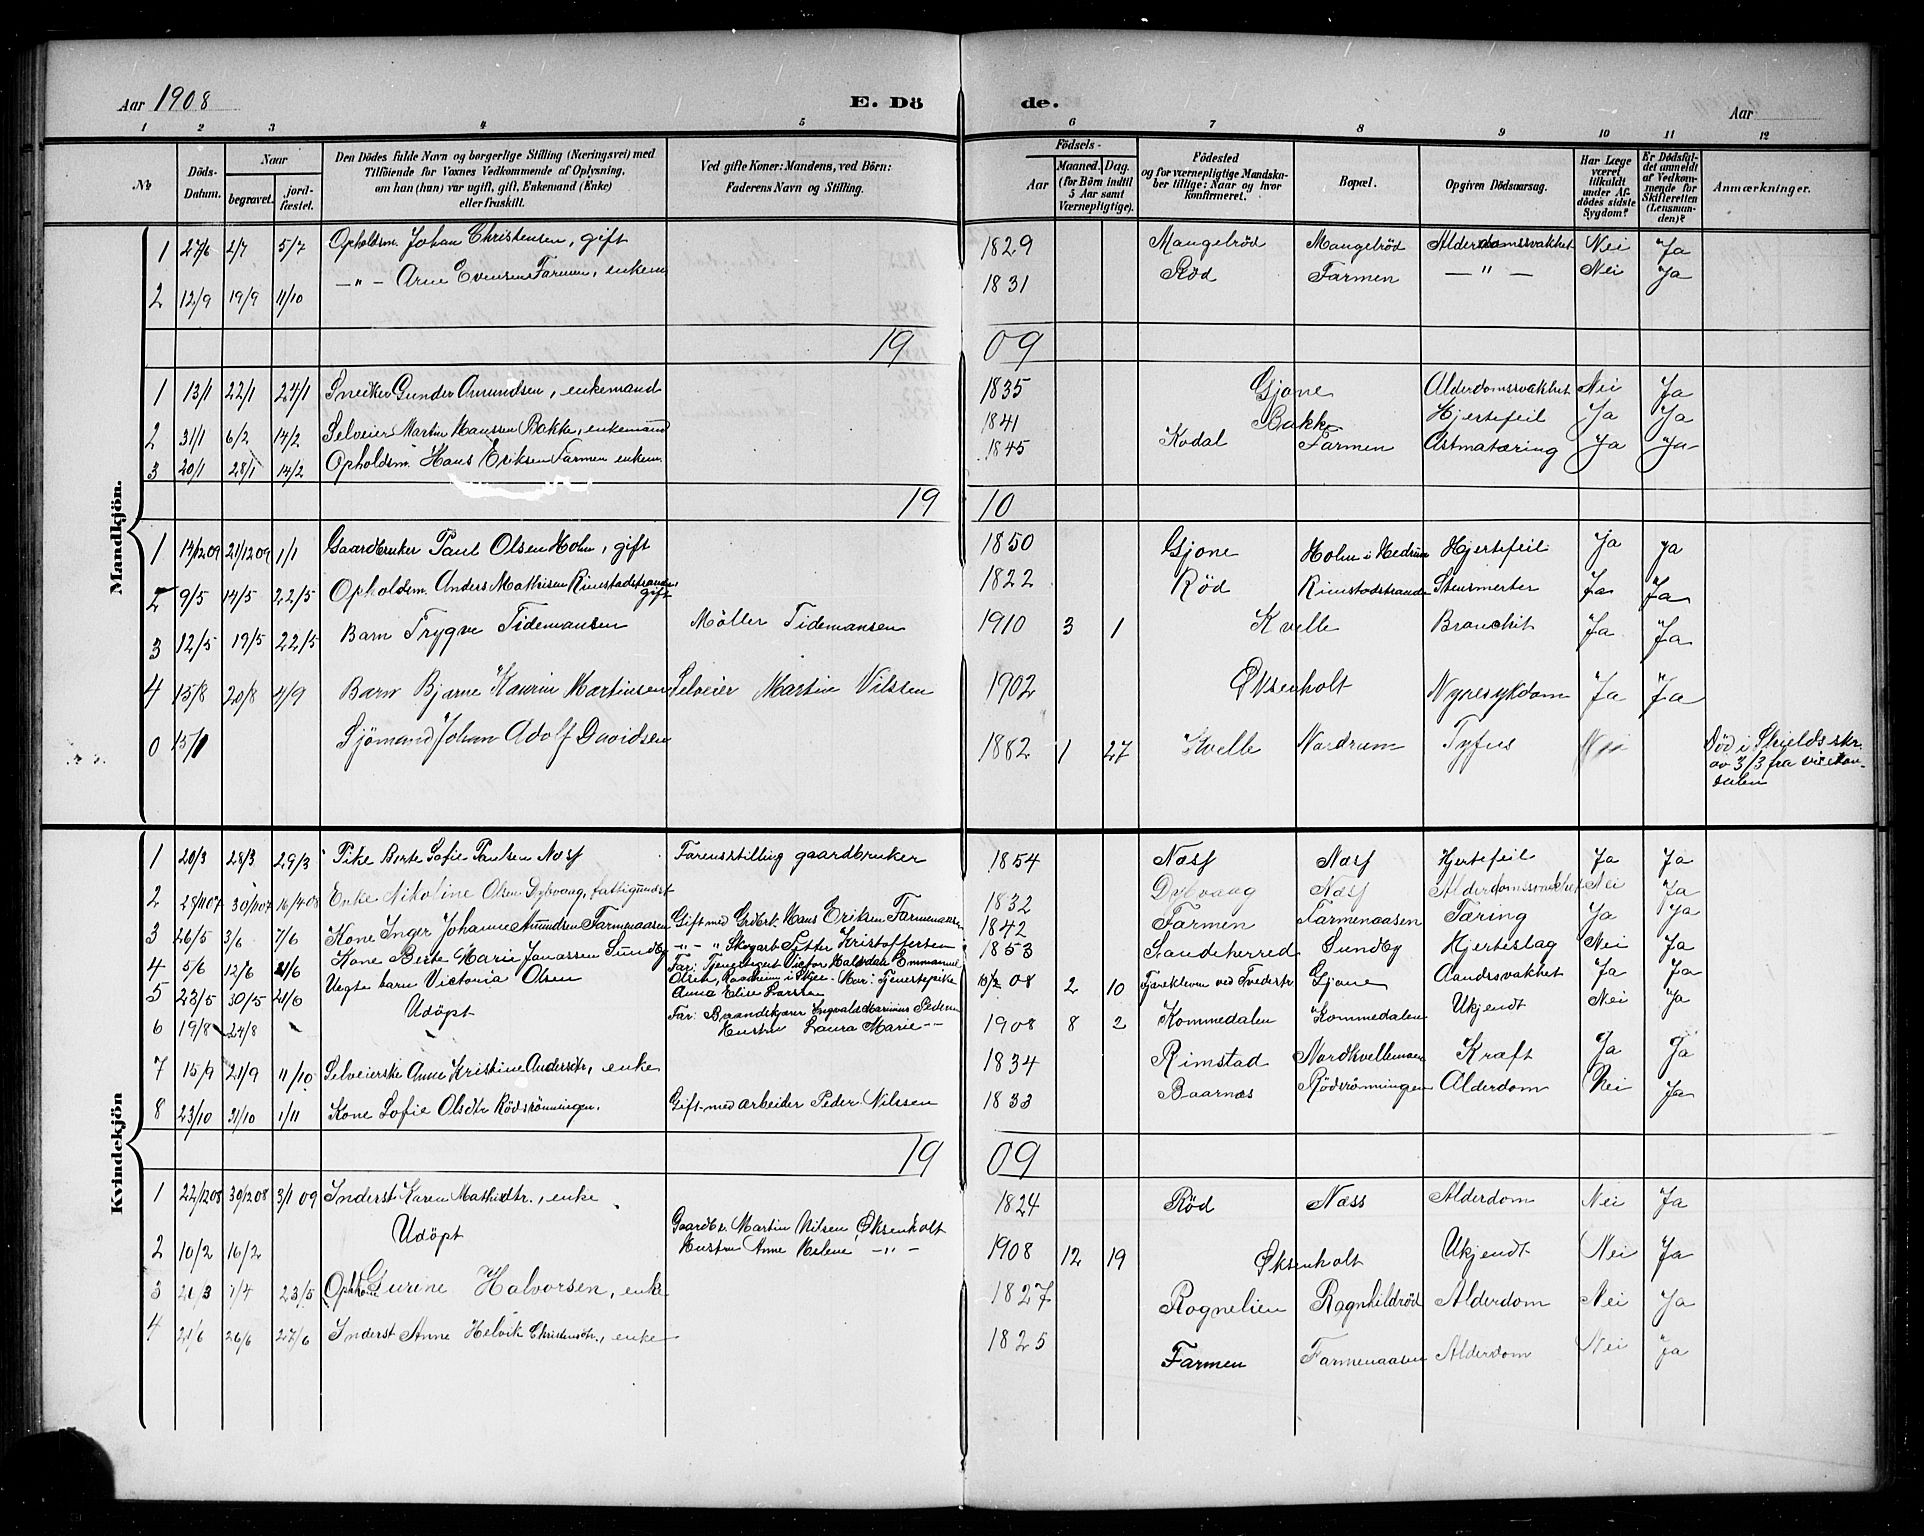 Aar 1908 E. Dö de. Aar
1 2 3 4 5 6 7 8 9 10 11 12
No Döds-Datum. Naar begravet. jord-fæstet. Den Dödes fulde Navn og borgerlige Stilling (Næringsvei) med Tilföiende for Voxnes Vedkommende af Oplysning, om han (hun) var ugift, gift, Enkemand (Enke) eller fraskilt. Ved gifte Koner: Mandens, ved Börn: Faderens Navn og Stilling. Födsels- Aar Maaned. Dag. (for Börn indtil 5 Aar samt Værnepligtige). Födested og for værnepligtige Mandskaber tillige: Naar og hvor konfirmeret. Bopæl. Opgiven Dödsaarsag. Har Læge været tilkaldt under Afdödes sidste Sygdom? Er Dödsfaldet anmeldt af Vedkommende for Skifteretten (Lensmanden)? Anmærkninger.
Mandkjön.
1 27/6 2/7 5/7 Opholdsm. Johan Christensen, gift 1829 Mangelröd Mangelröd Alderdomssvakhet Nei Ja
2 12/9 19/9 11/10 —"— Arne Evensen Farmen, enkem 1831 Röd Farmen —"— Nei Ja
19 09
1 13/1 22/1 24/1 Snecker Gunder Amundsen, enkemand 1835 Gjone Alderdomssvakhet Nei Ja
2 31/1 6/2 14/2 Selveier Martin Hanssen Bakke, enkemand 1841 Bakke Hjertefeil Ja Ja
3 20/1 28/1 14/2 Opholdsm. Hans Eriksen Farmen enkem. 1845 Kodal Farmen Astmatæring Ja Ja
19 10
1 14/12 09 21/12 09 1/1 Gaardbruker Paul Olsen Holm, gift 1850 Gjone Holm i Hedrum Hjertefeil Ja Ja
2 9/5 14/5 22/5 Opholdsm. Anders Mathisen Rimstadstranden, gift 1822 Röd Rimstadstranden Stensmerter Ja Ja
3 12/5 19/5 22/5 Barn Trygve Tidemansen Möller Tidemansen 1910 3 1 Kvelle Bronchit Ja Ja
4 15/8 20/8 4/9 Barn Bjarne Kaurin Martinsen Selveier Martin Nilsen 1902 Øksenholt Nyresykdom Ja Ja
0 15/1 Sjömand Johan Adolf Davidsen 1882 1 27 Kvelle Nordrum Tyfus Nei Död i Shields skr. av 3/3 fra
Kvindekjön
1 20/3 28/3 29/3 Pike Berte Sofie Paulsen Næss Farensstilling gaardbruker 1854 Næss Næss Hjertefeil Ja Ja
2 28/11 07 30/11 07 16/4 08 Enke Nikoline Olsen Dybvaag, fattigunderst 1832 Dybvaag Næss Alderdomssvakhet Nei Ja
3 26/5 3/6 7/6 Kone Inger Johanne Amundsen Farmenaasen Gift med Grdbr. Hans Eriksen Farmenaasen 1842 Farmen Farmenaasen Tæring Ja Ja
4 5/6 12/6 21/6 Kone Berte Marie Jonassen Sundby —"— Skogarb. Petter Kristoffersen 1853 Sandeherred Sundby Hjerteslag Nei Ja
5 23/5 30/5 21/6 Uegte barn Victoria Olsen Far: Tjenestegut Victor Halvdan Emmanuel Olsen, Raaheim i Skjee. Mor: Tjenestepike Anna Elise Larsen 13/2 08 2 10 Fjærekleven ved Tvedestr Gjone Aandssvakhet Ja Ja
6 19/8 24/8 Udöpt Far: Ingvald Marinius Pedersen Hustru Laura Marie —"— 1908 8 2 Kommedalen Kommedalen Ukjendt Nei Ja
7 15/9 21/9 11/10 Selveierske Anne Kristine Andersdtr, enke 1834 Rimstad Nordkvellemoen Kræft Ja Ja
8 23/10 31/10 1/11 Kone Sofie Olsdtr Rödsrönningen. Gift med arbeider Peder Nilssen 1833 Baarnæs Rödsrönningen Alderdom Nei Ja
19 09
1 22/12 08 30/12 08 3/1 09 Inderst Karen Mathisdtr., enke 1824 Röd Næss Alderdom Nei Ja
2 10/2 16/2 Udöpt Gaardbr. Martin Nilsen, Øksenholt Hustru Anne Helene —"— 1908 12 19 Øksenholt Ukjendt Nei Ja
3 21/3 1/4 23/5 Opholdskone Gurine Halvorsen, enke 1827 Rognelien Ragnhildröd Alderdom Nei Ja
4 21/6 26/6 27/6 Inderst Anne Helvik Christensdtr., enke 1825 Farmen Farmenaasen Alderdom Nei Ja